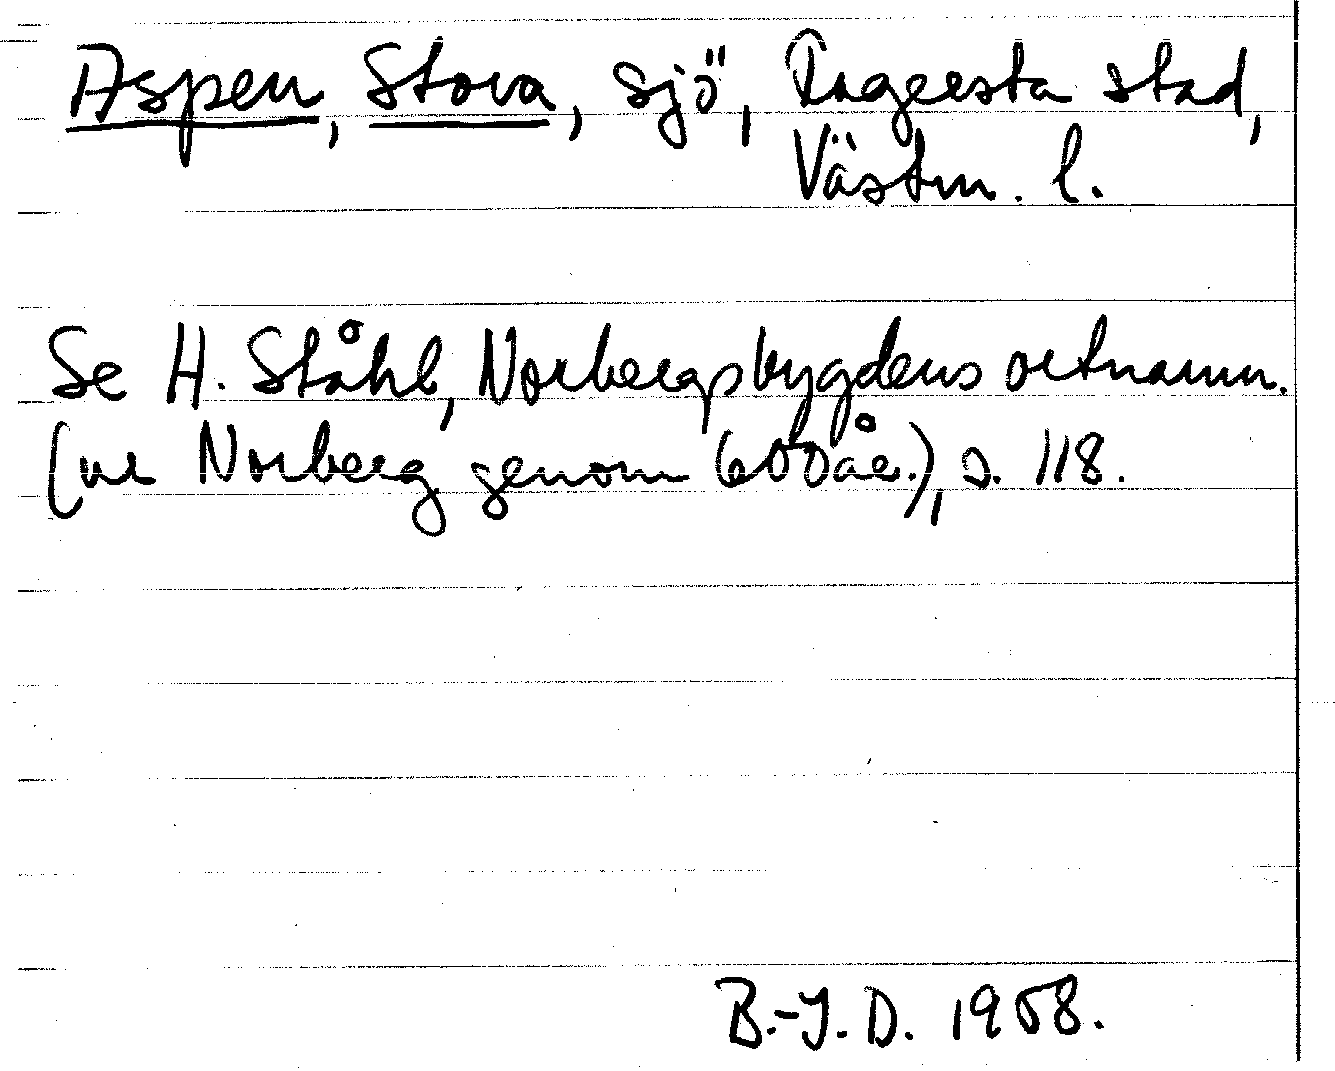 Aspen, Stora, sjö, Fagersta stad,
Västm. l.
Se H. Ståhl, Norbergsbygdens ortnamn.
(ur Norberg genom 600 år.), s. 118.
B.-J. D. 1958.